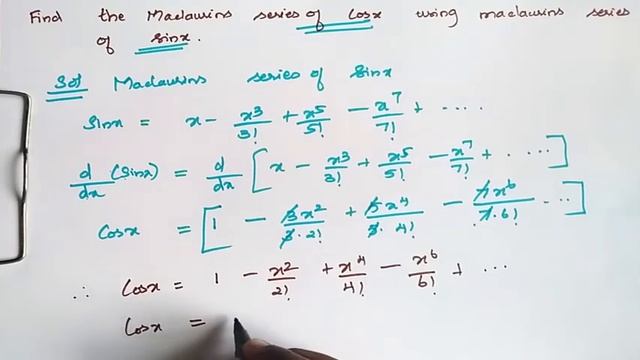 Find the Maclaurins series of Cosx using maclaurins series
of sinx.
Sol Maclaurins series of Sinx
Sinx = x - x³/3! + x⁵/5! - x⁷/7! + ....
d/dx (Sinx) = d/dx [x - x³/3! + x⁵/5! - x⁷/7! + ....]
Cosx = [1 - 3x²/3·2! + 5x⁴/5·4! - 7x⁶/7·6! ...]
∴ Cosx = 1 - x²/2! + x⁴/4! - x⁶/6! + ...
Cosx =